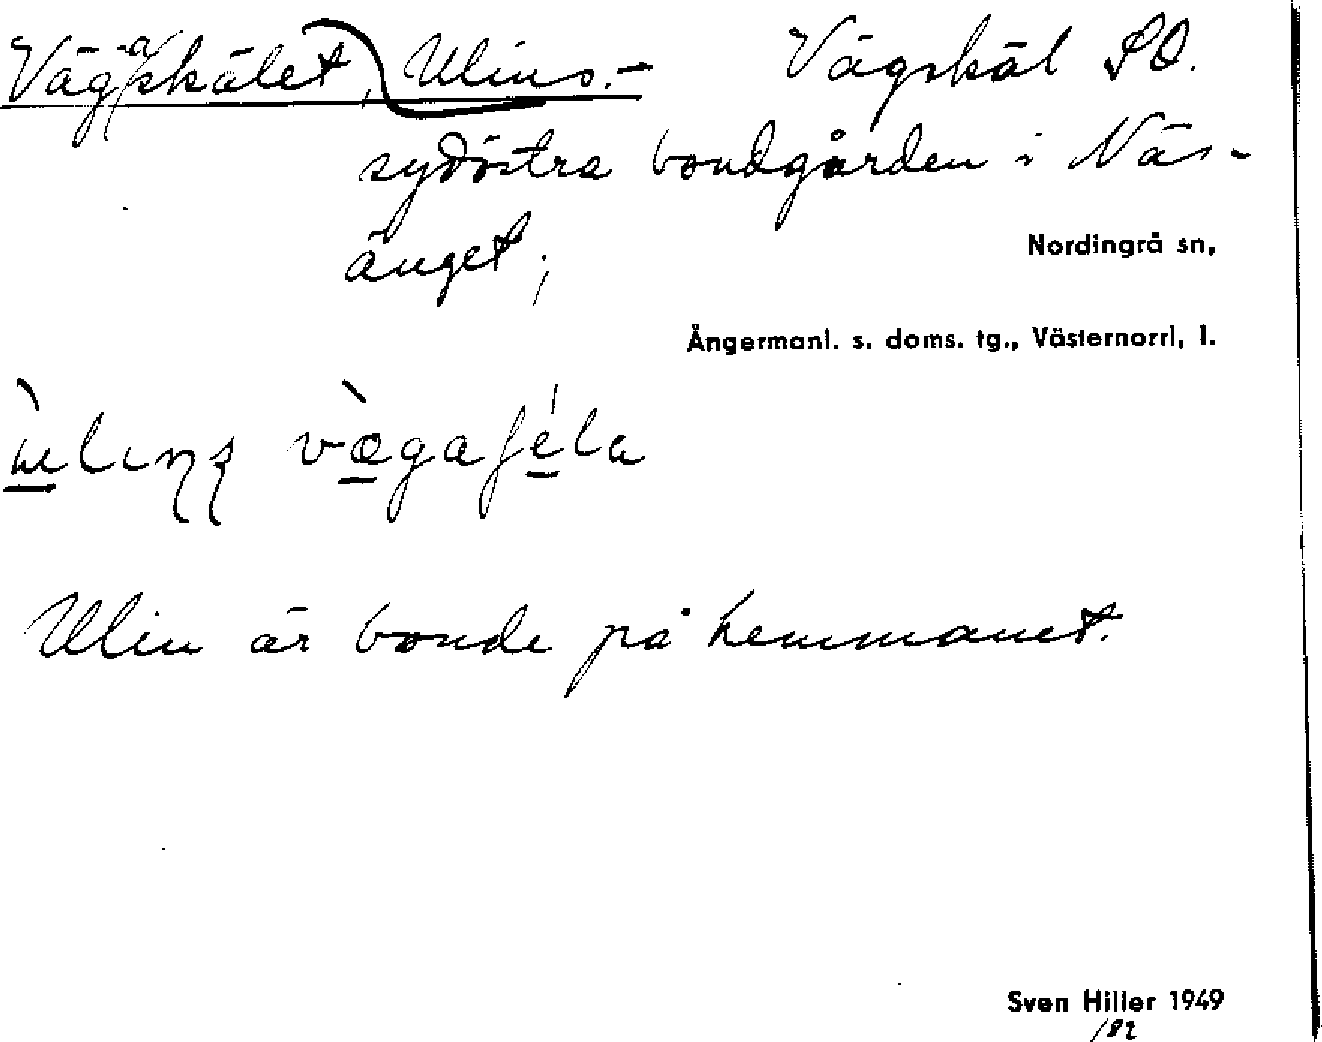 Vägaskälet, Ulins.- Vägskäl SO.
sydöstra bondgården i Näs-
änget;
Nordingrå sn,
Ångermanl. s. doms. tg., Västernorrl, l.
Ulin är bonde på hemmanet.
Sven Hiller 1949
182